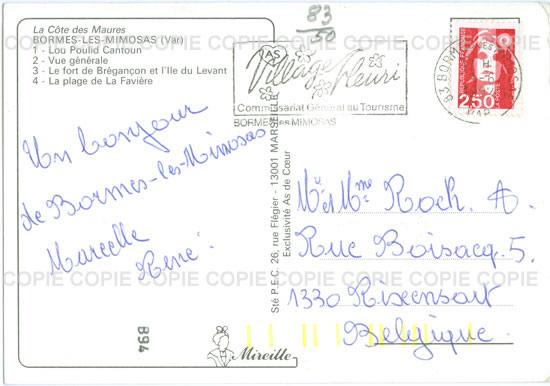 La Côte des Maures
BORMES-LES-MIMOSAS (Var)
1 - Lou Poulid Cantoun
2 - Vue générale
3 - Le fort de Brégançon et l'Ile du Levant
4 - La plage de La Favière
83
50
AS
Village fleuri
Commissariat Général au Tourisme
BORMES Les MIMOSAS
2,50
Un bonjour
de Bormes-les-Mimosas
Marcelle
René.
Sté P.E.C. 26, rue Flégier - 13001 MARSEILLE
Exclusivité As de Cœur
Mr et Mme Roch. A.
Rue Boisacq. 5.
1330 Rixensart
Belgique.
B94
Mireille
COPIE COPIE COPIE COPIE COPIE COPIE COPIE COPIE
COPIE COPIE COPIE COPIE COPIE COPIE COPIE COPIE